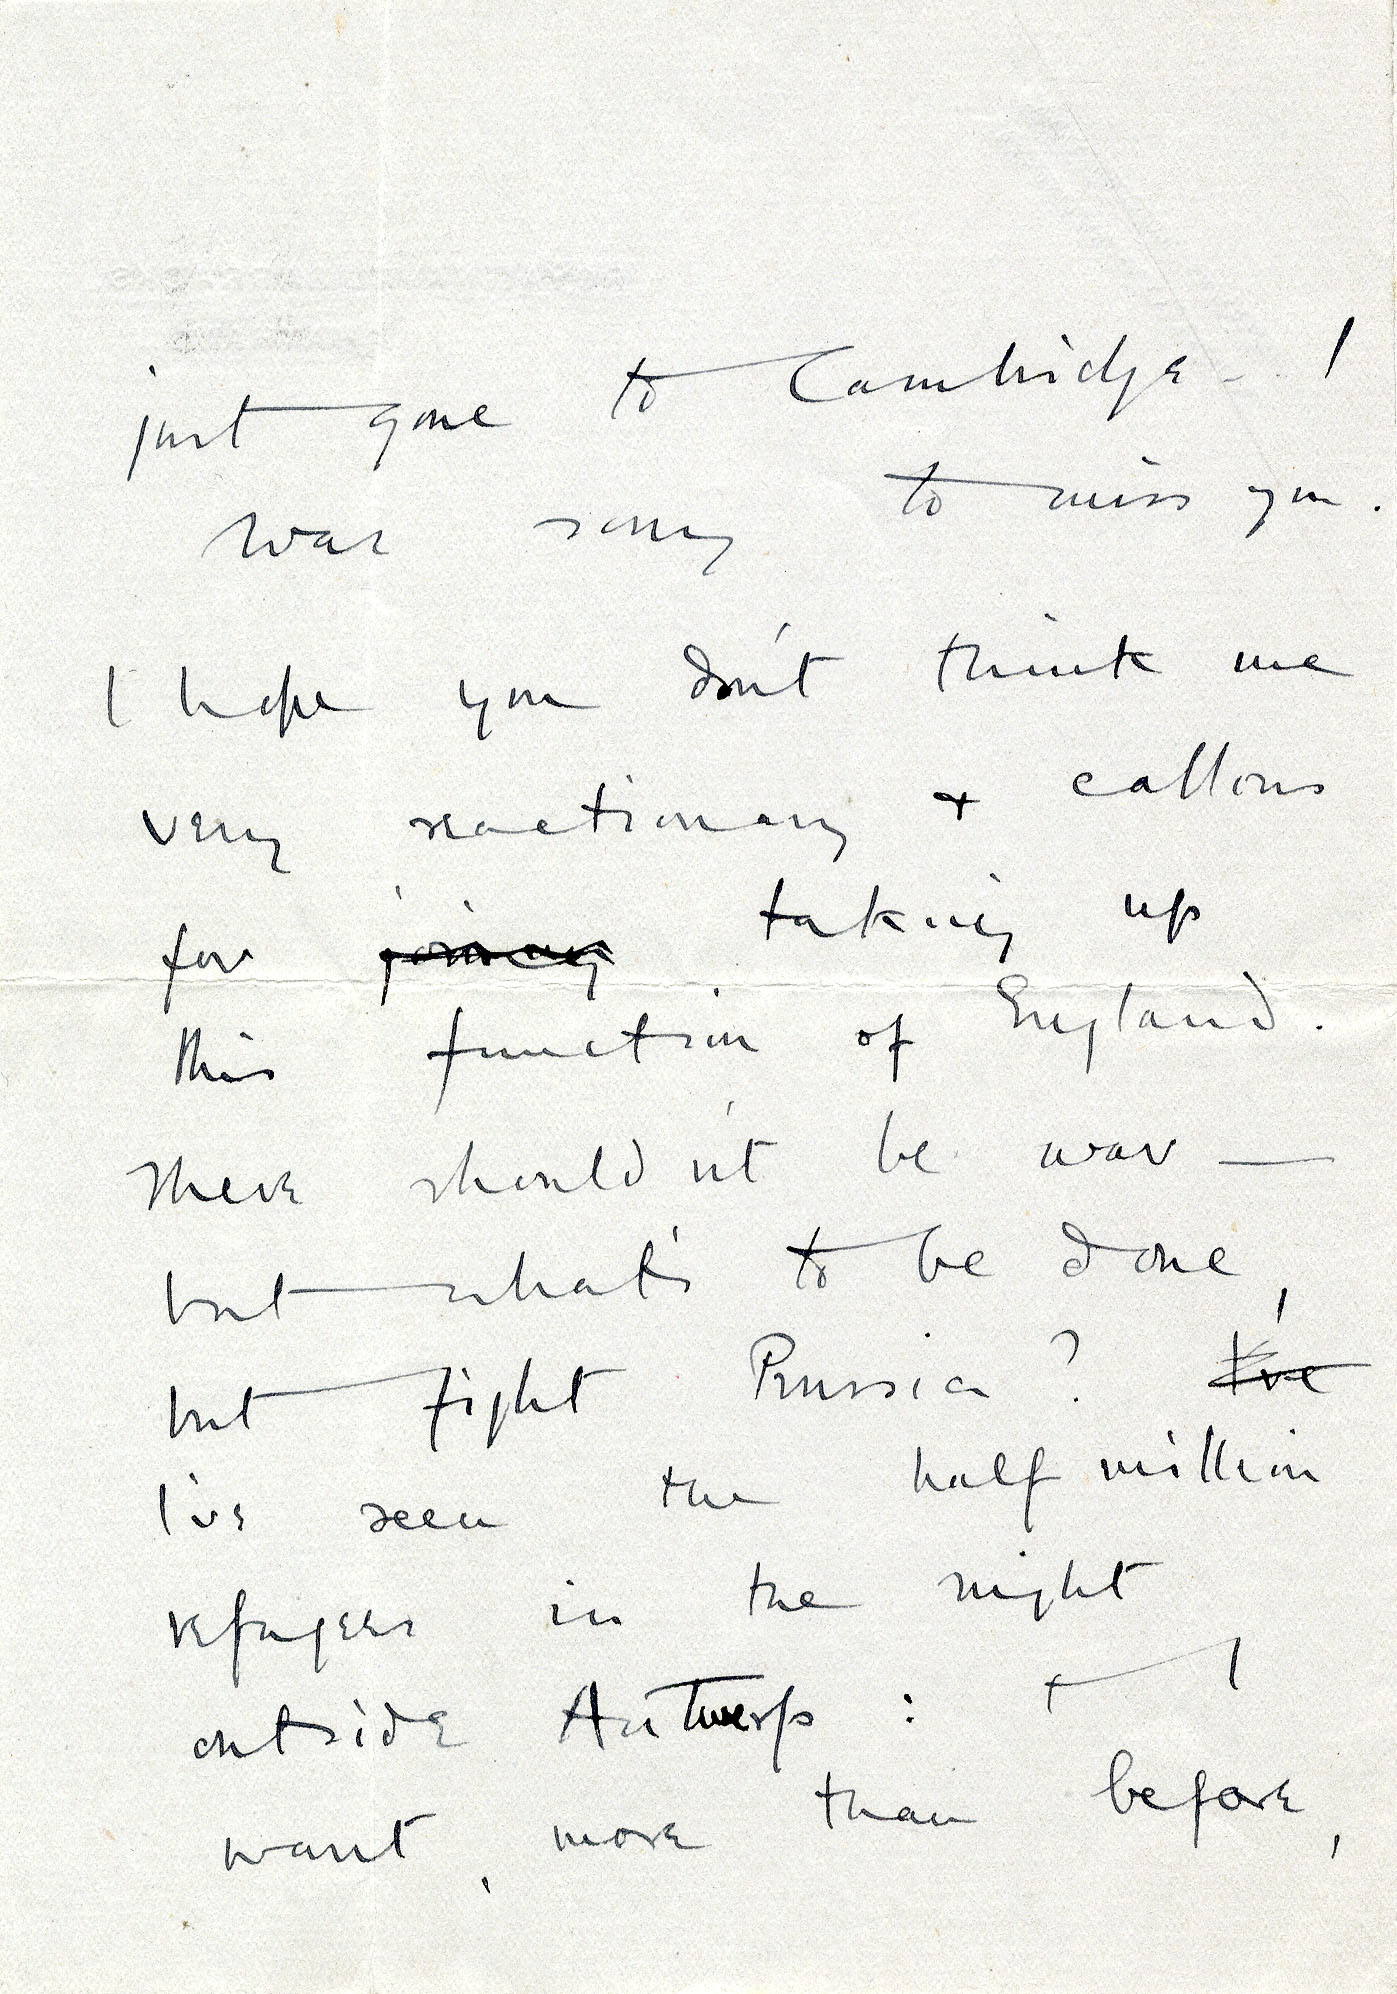 just gone to Cambridge. I
was sorry to miss you.
I hope you don't think me
very reactionary & callous
for joining taking up
this function of England.
There shouldn't be war —
but what's to be done,
but fight Prussia? I've
I've seen the half million
refugees in the night
outside Antwerp: & I
want, more than before,